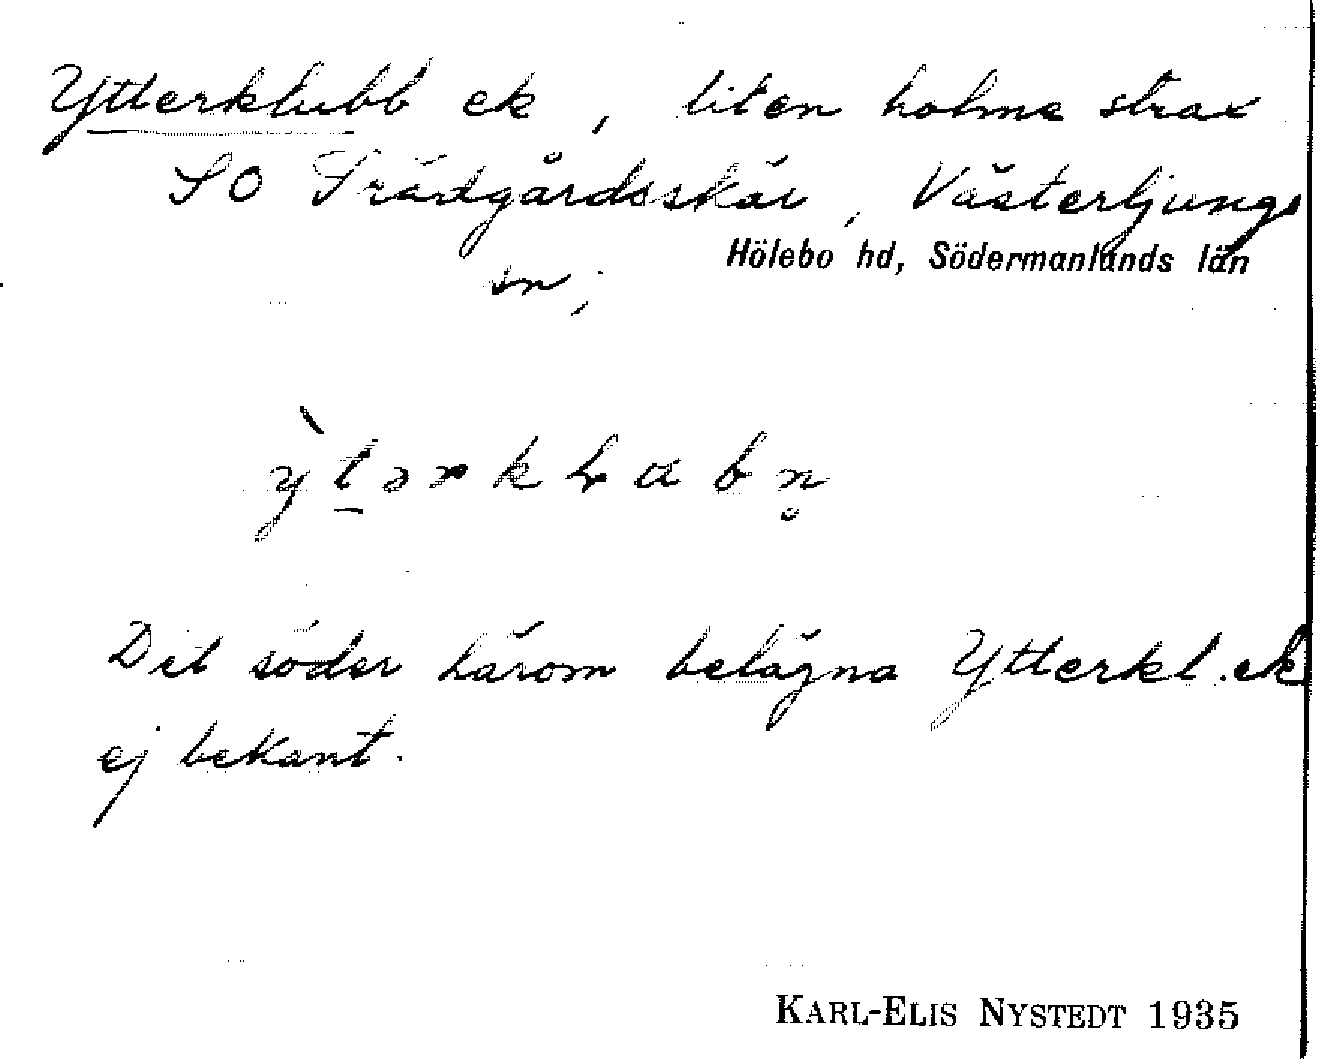 Ytterklubb ek, liten holme strax
SO Trädgårdsskär, Västerljungs
Hölebo hd, Södermanlands län
sn;
Det söder härom belägna Ytterkl. ek
ej bekant.
KARL-ELIS NYSTEDT 1935